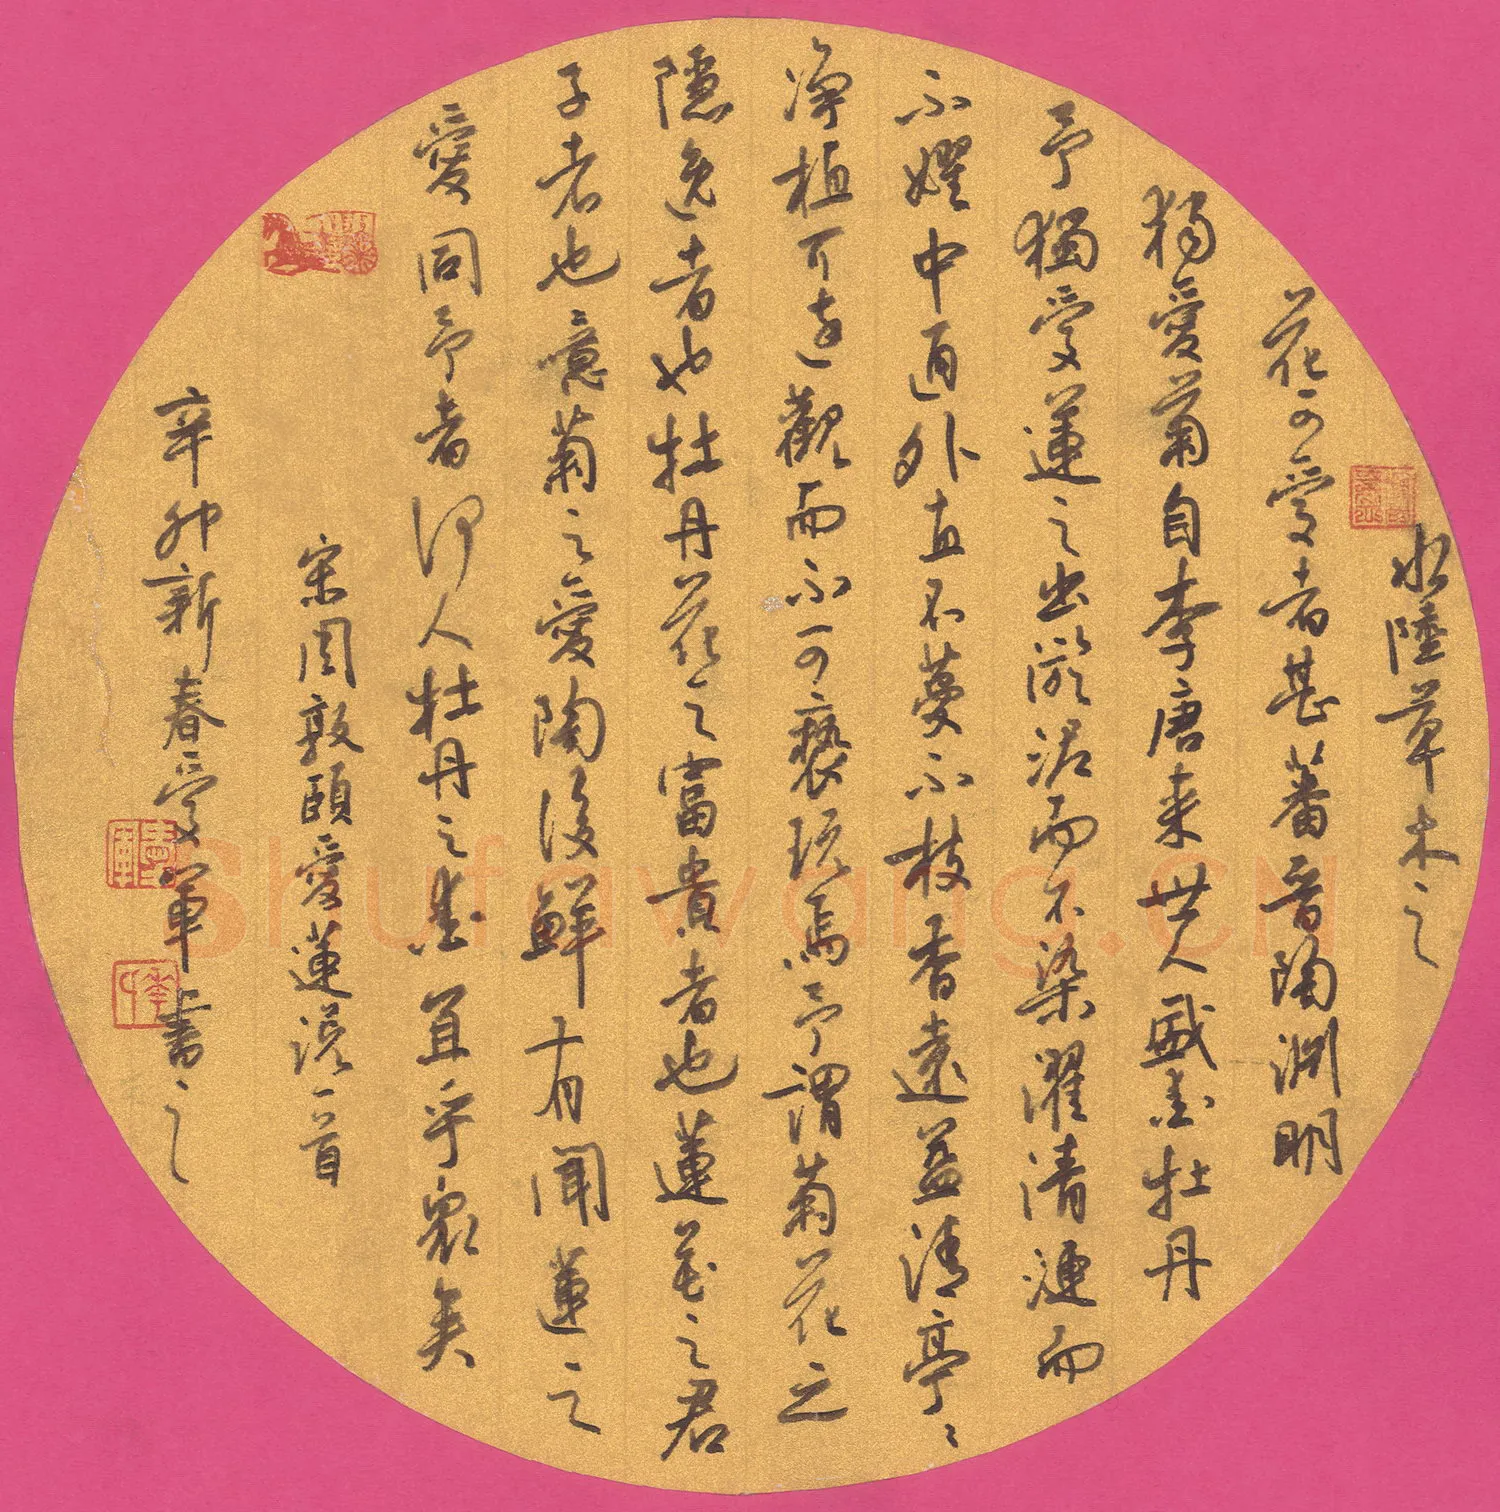 水陸草木之
花可愛者甚蕃晉陶淵明
獨愛菊自李唐来世人盛愛牡丹
予獨愛蓮之出淤泥而不染濯清漣而
不嬥中通外直不蔓不枝香遠益清亭〻
淨植可遠觀而不可褻玩焉予謂菊花之
隱逸者也牡丹花之富貴者也蓮花之君
子者也噫菊之愛陶後鮮有聞蓮之
愛同予者何人牡丹之愛宜乎衆矣
宋周敦頤愛蓮説一首
辛卯新春愛軍書之
Shufawang.CN